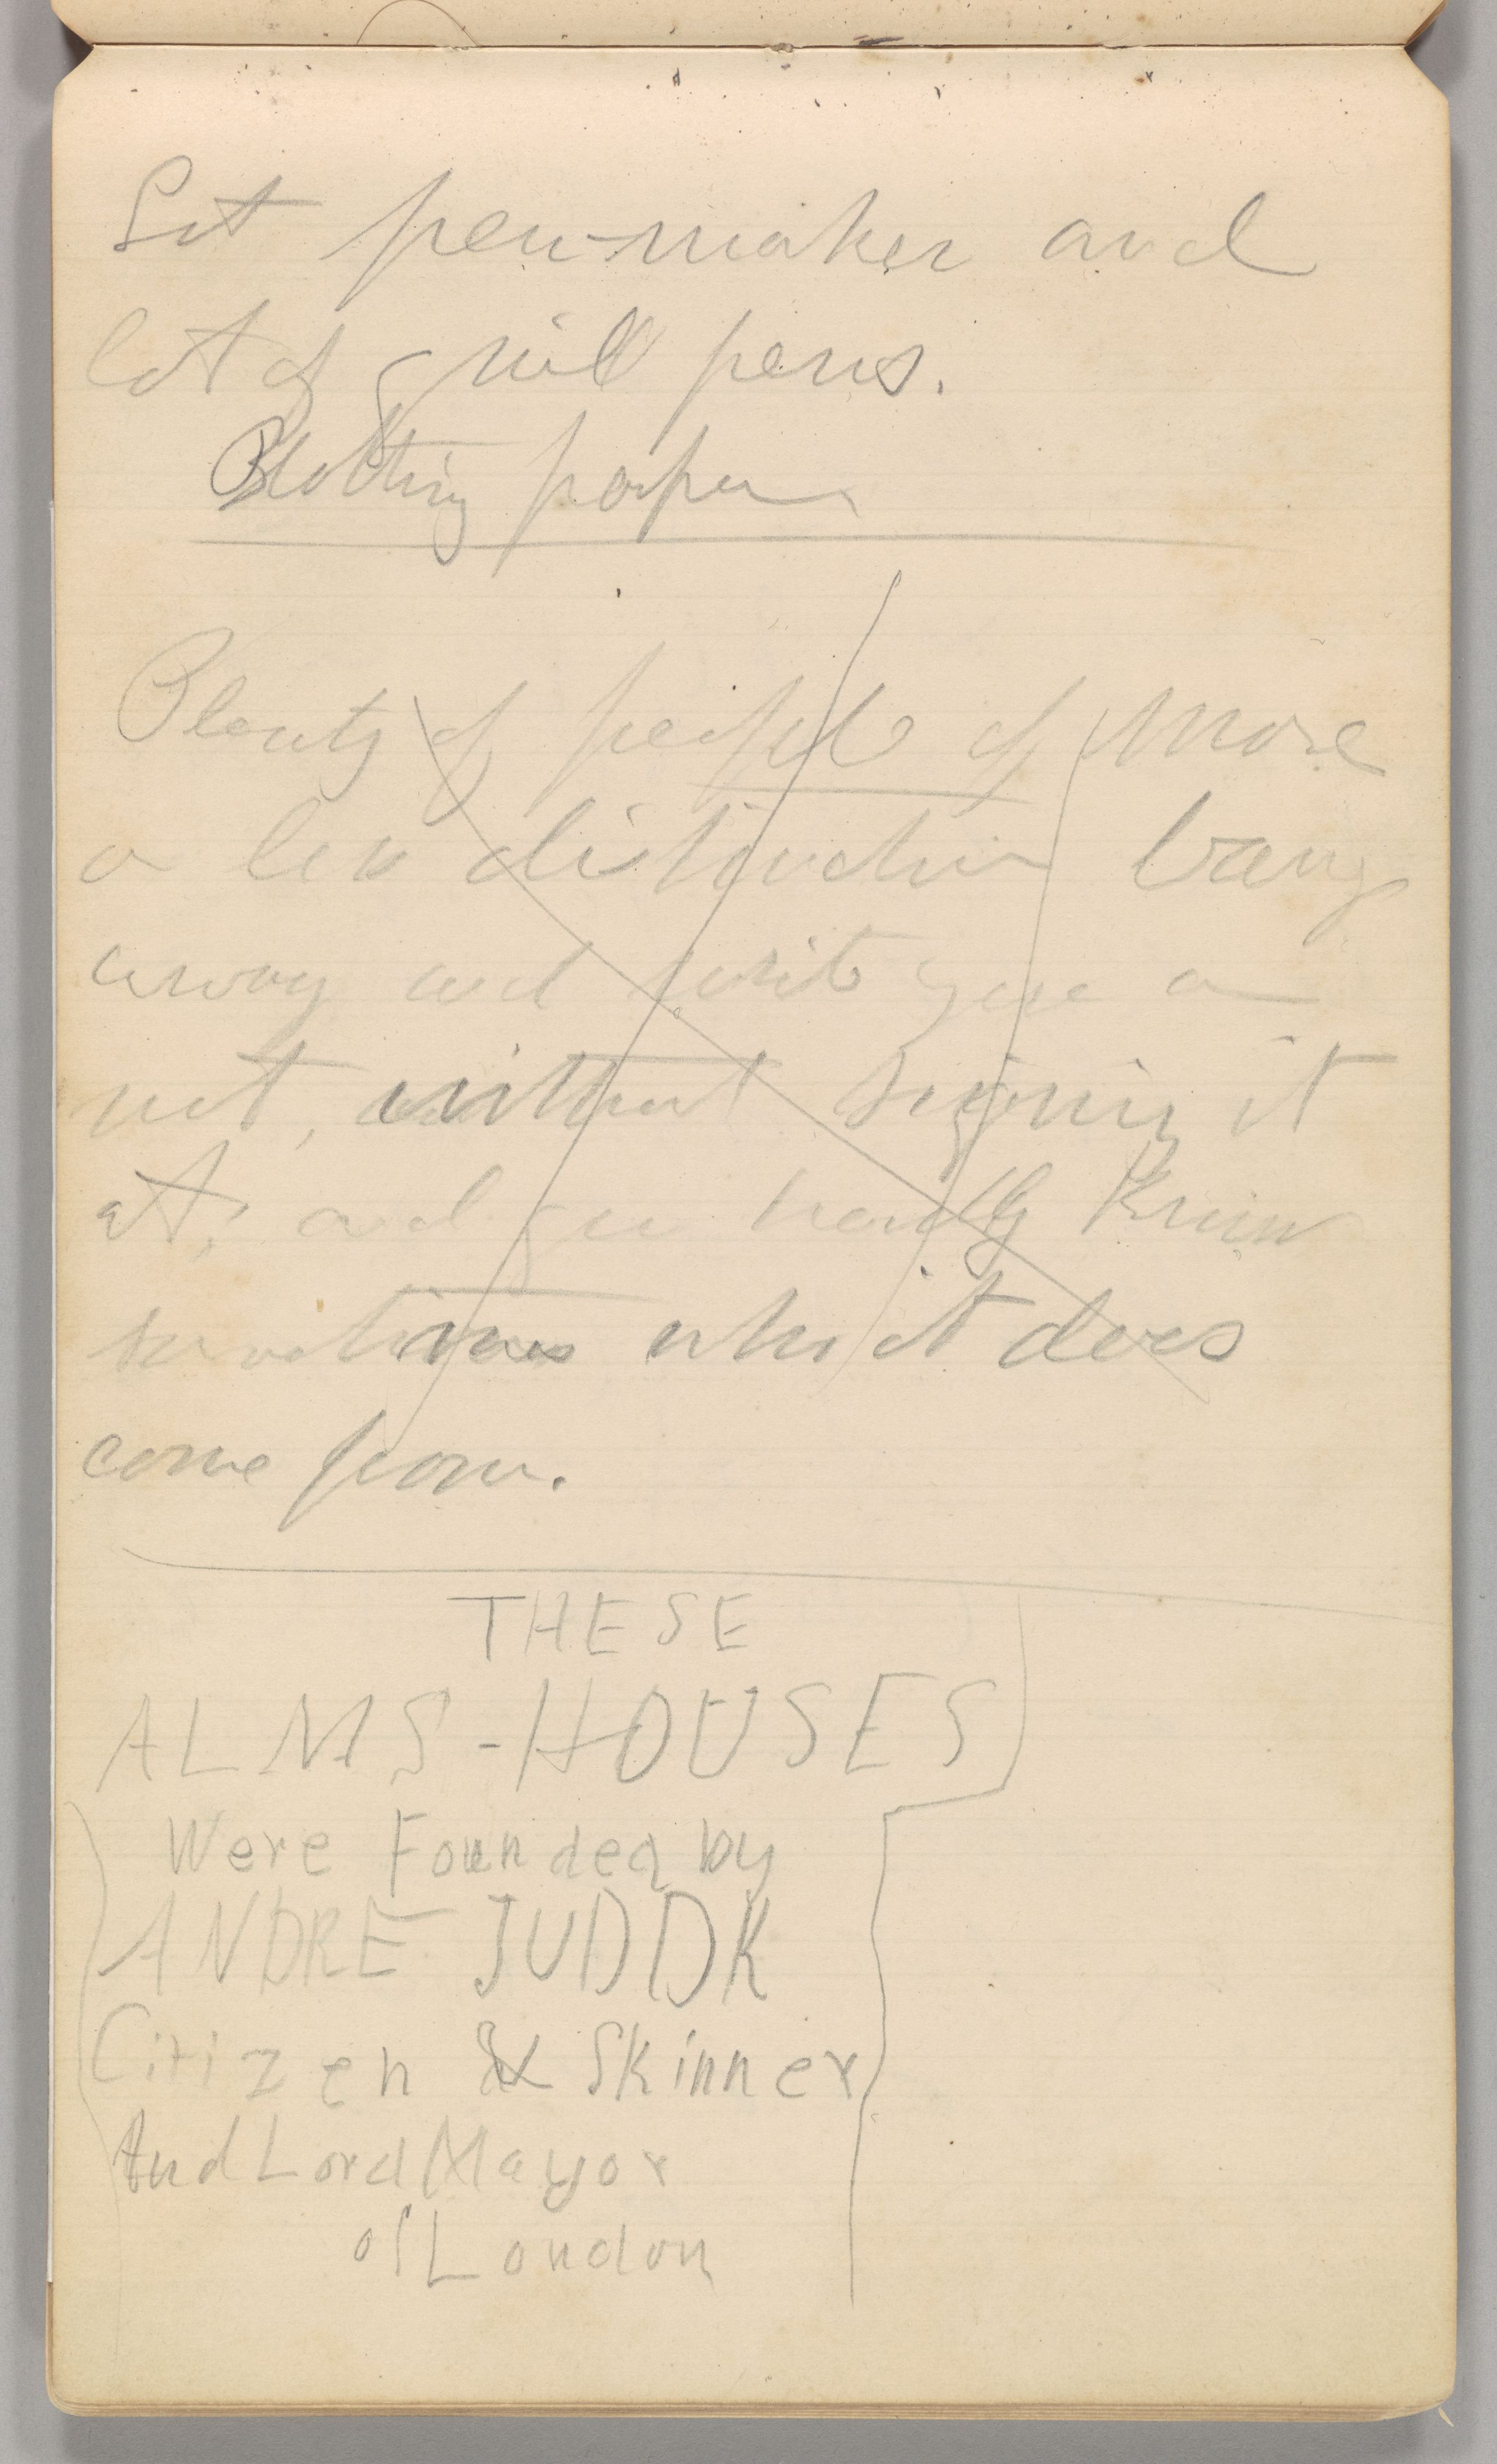 Get pen-maker and
lot of quill pens.
Blotting paper
Plenty of people of more
or less distinction bang
away and write you a
not, without signing it
at, and you hardly know
sometimes who it does
come from.
THESE
ALMS-HOUSES
Were Founded by
ANDRE JUDDK
Citizen & Skinner
And Lord Mayor
of London